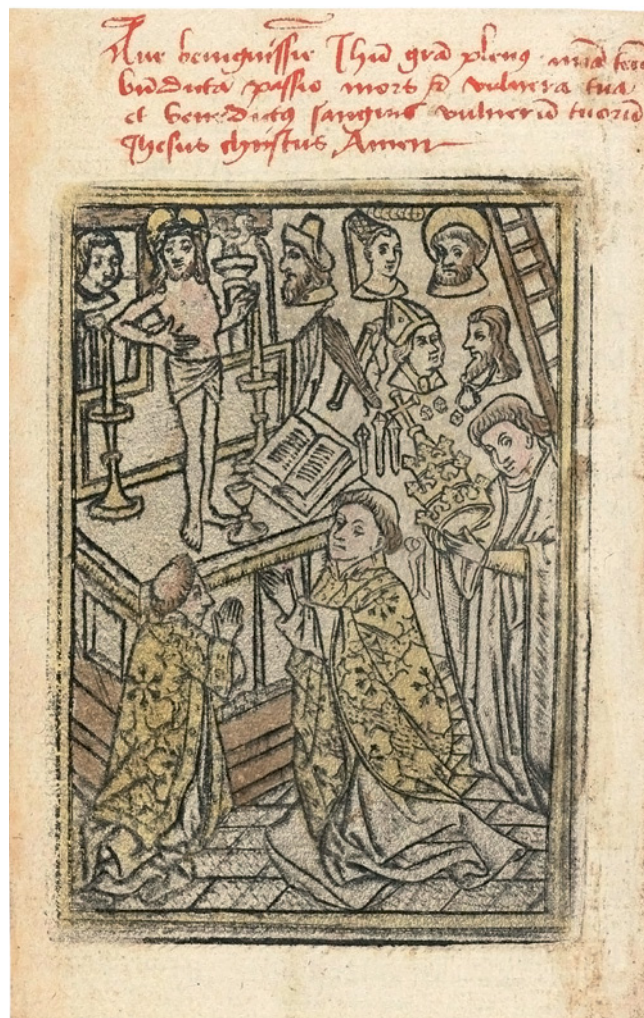 Aue benignissie Ihu gra plenus mia tecu
bndicta passio mors et vulnera tua
et benedictus sanguis vulneru tuoru
Jhesus christus Amen